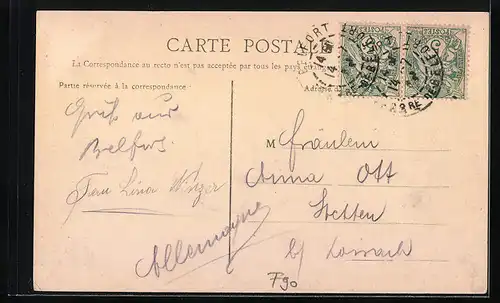 CARTE POSTALE
La Correspondance au recto n'est pas acceptée par tous les pays
Partie réservée à la correspondance
Adresse
Gruß aus
Belfort
Frau Lina
M Fräulein
Anna Ott
Stetten
b/ Lörrach
Allemagne
F90
BELFORT